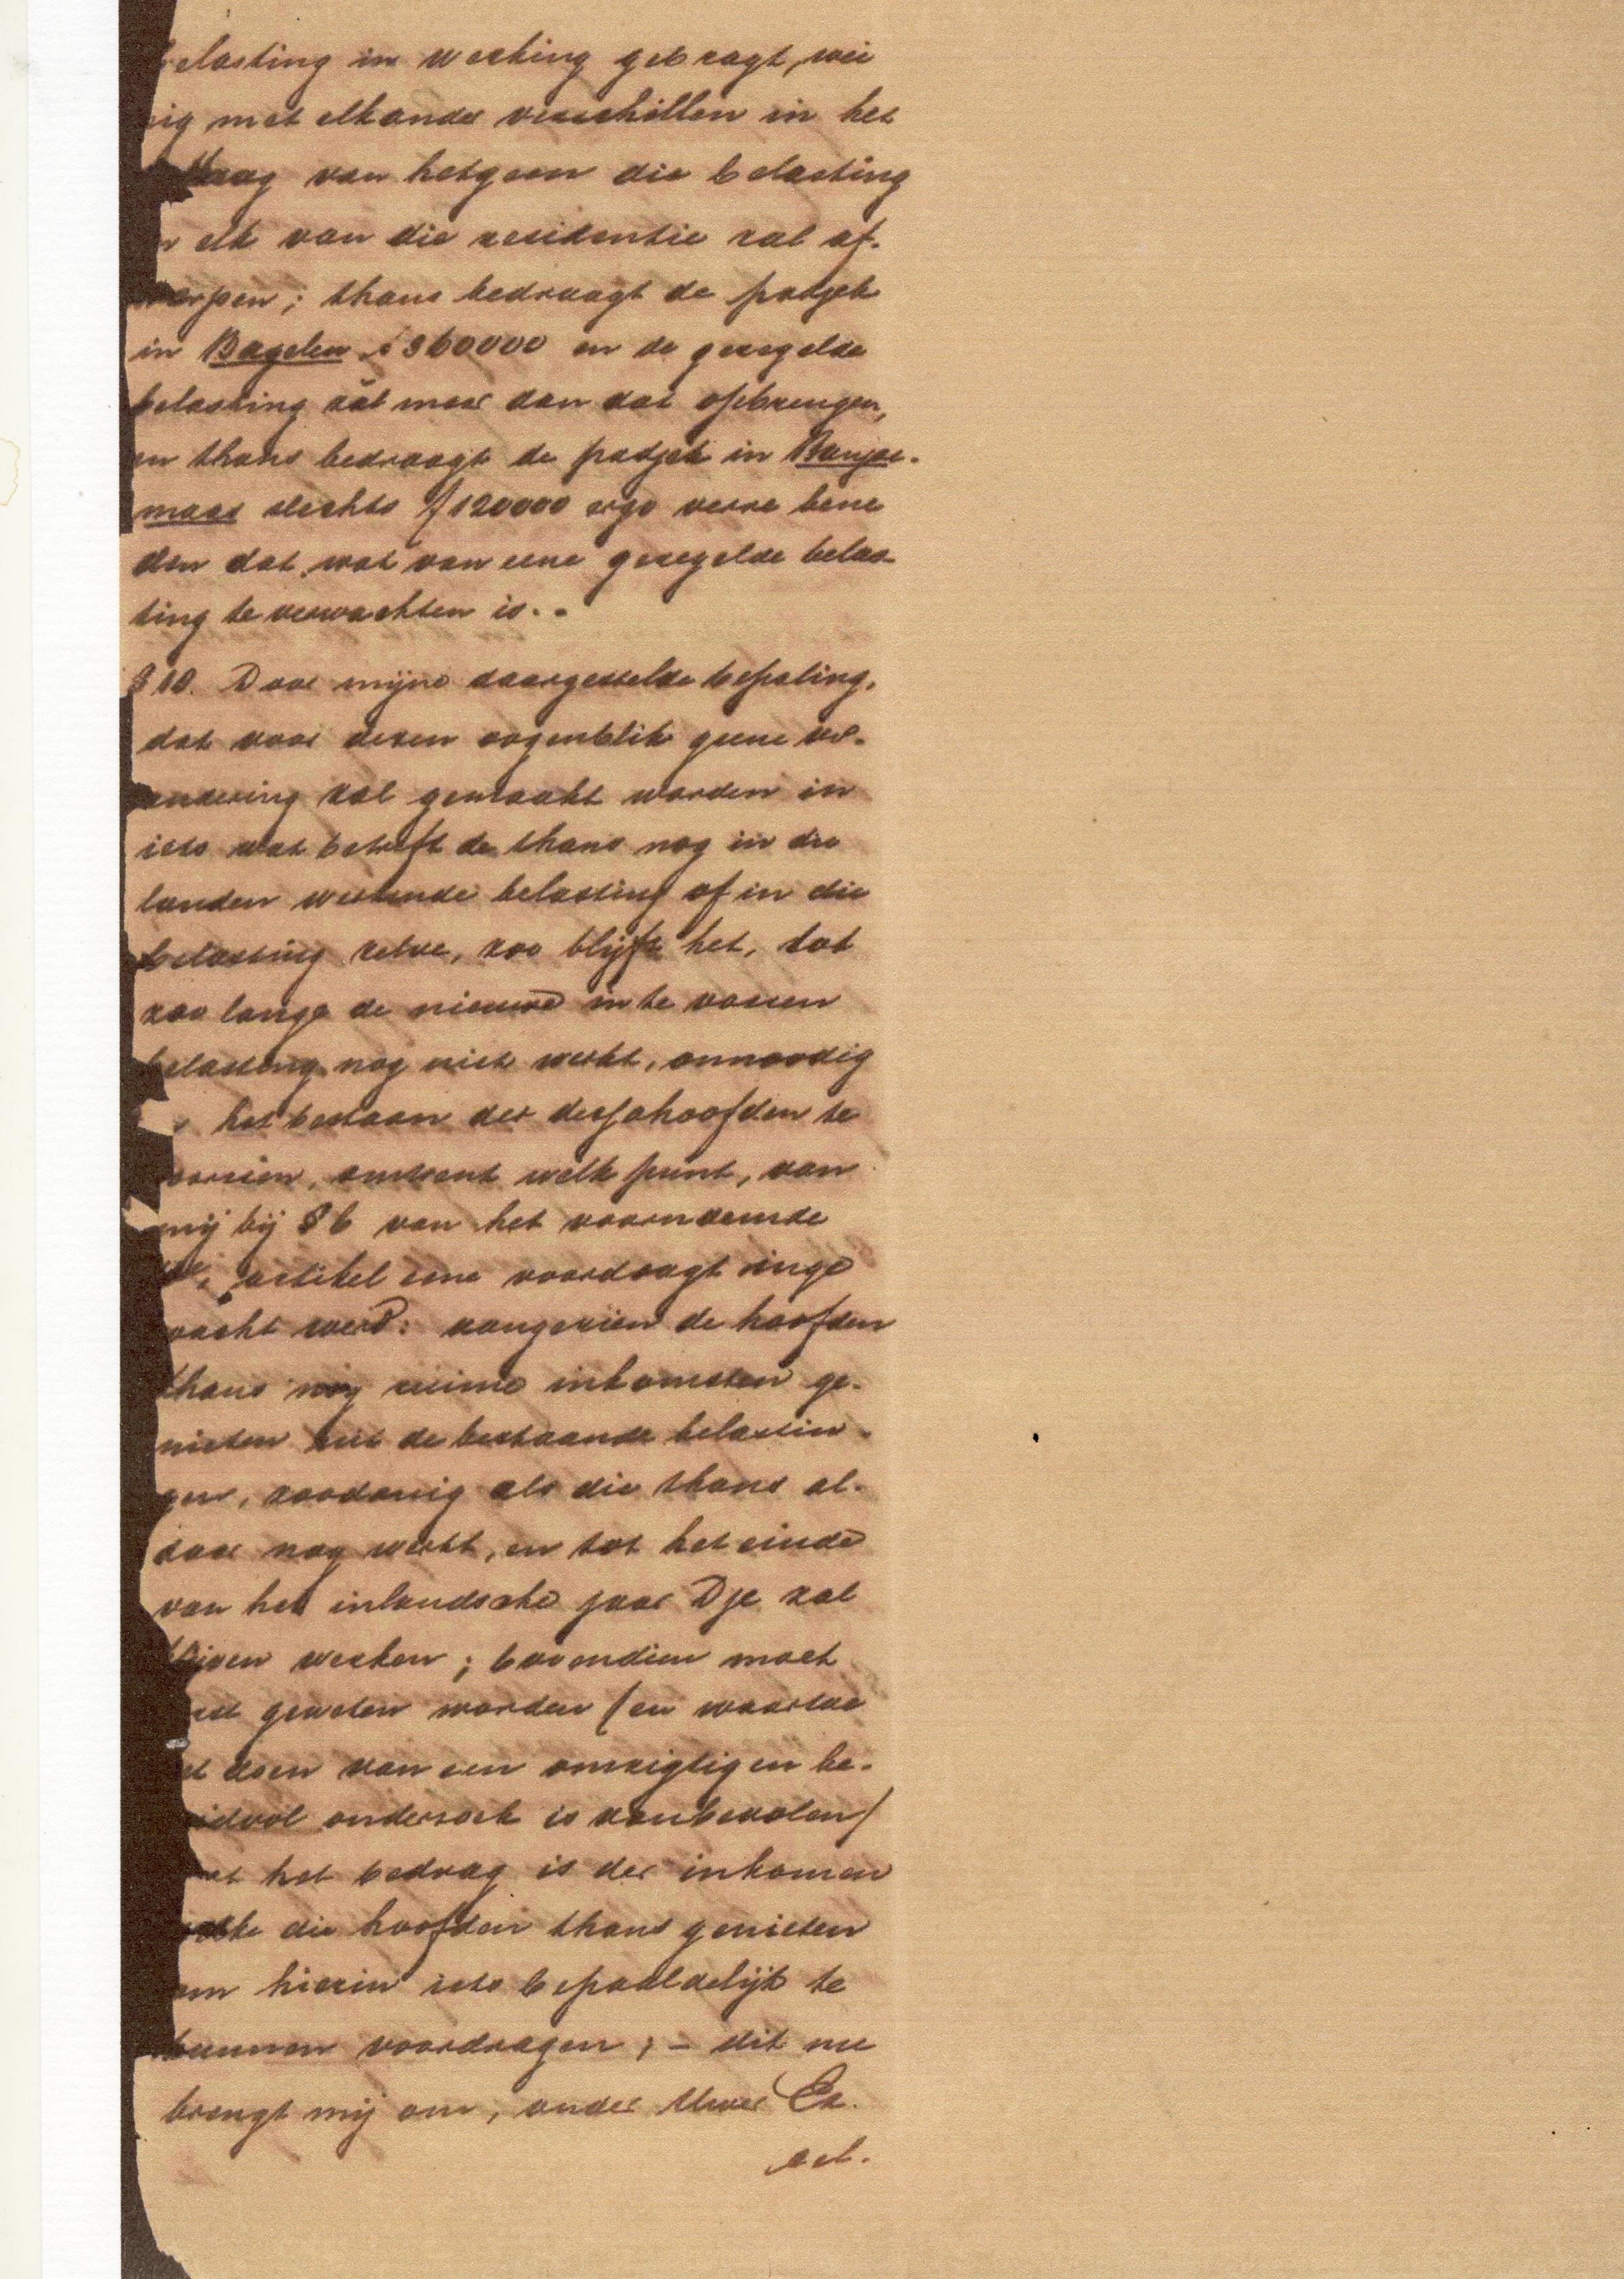 elasting in werking gebragt, wei
nig met elkander verschillen in het
van hetgeen die belasting
elk van die residentie zal af-
werpen; thans bedraagt de padjek
in Bagelen f 360000 en de geregelde
belasting zàl meer dan dat opbrengen,
en thans bedraagt de padjek in Banjoe-
maas slechts f 120000 ergo verre bene
den dat wat van eene geregelde belas-
ting te verwachten is. -
§ 10. Door mijne daargestelde bepaling,
dat voor dezen oogenblik geene ver-
andering zal gemaakt worden in
iets wat betreft de thans nog in die
landen werkende belasting of in die
belasting zelve, zoo blijft het, tot
zoo lange de nieuwe in te voeren
belasting nog niet werkt, onnoodig
het bestaan der dessahoofden te
voorzien, omtrent welk punt, van
mij bij § 6 van het voornoemde
artikel eene voordragt inge
wacht werd: aangezien de hoofden
thans nog ruime inkomsten ge-
nieten uit de bestaande belastin-
gen, zoodanig als die thans al-
daar nog werkt, en tot het einde
van het inlandsche jaar Dje zal
blijven werken; bovendien moet
eerst geweten worden (en waartoe
het doen van een omzigtigen be-
leidvol onderzoek is aanbevolen)
wat het bedrag is der inkomen
welke die hoofden thans genieten
om hierin iets bepaaldelijk te
kunnen voordragen; - dit nu
brengt mij om, onder Uwer Ex-
cel.